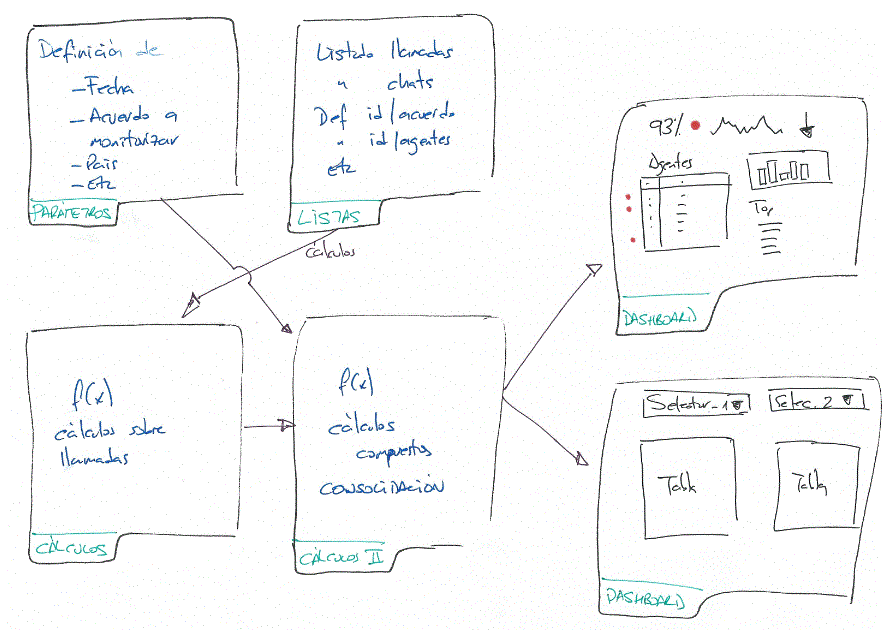 Definición de
- Fecha
- Acuerdo a
monitorizar
- País
- Etz
PARÁMETROS
Listado llamadas
" chats
Def id/acuerdo
" id/agentes
etz
LISTAS
cálculos
93%
Agentes
Top
DASHBOARD
f(x)
cálculos sobre
llamadas
CÁLCULOS
f(x)
cálculos
compuestos
CONSOLIDACIÓN
CÁLCULOS II
Selector_1
Selec. 2
Tabla
Tabla
DASHBOARD